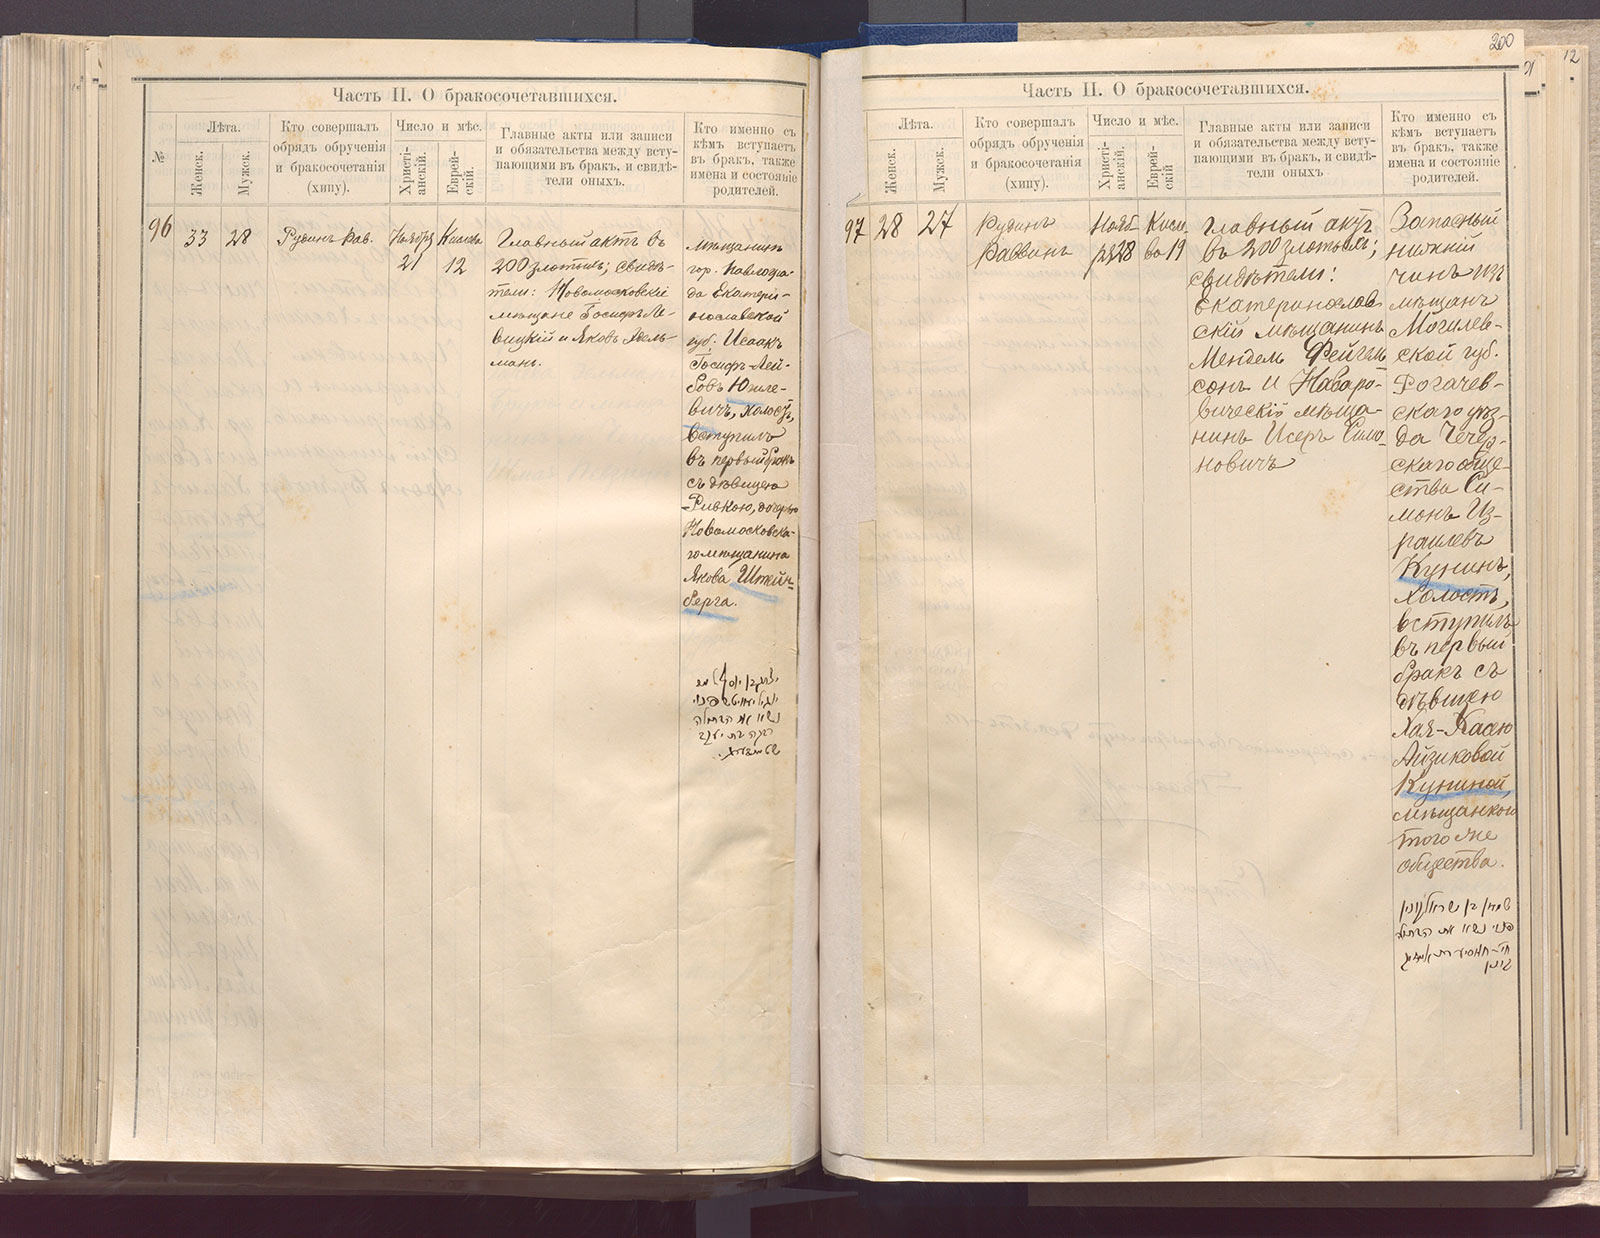 Часть II. О бракосочетавшихся.
№
Лѣта.
Женск.
Мужск.
Кто совершалъ
обрядъ обрученія
и бракосочетанія
(хипу).
Число и мѣс.
Христі-
анскій.
Еврей-
скій.
Главные акты или записи
и обязательства между всту-
пающими въ бракъ, и свидѣ-
тели оныхъ.
Кто именно съ
кѣмъ вступаетъ
въ бракъ, также
имена и состояніе
родителей.
96
33
28
Рувинъ Рав.
Ноября
21
Кислева
12
Главный актъ въ
200 злотыхъ; свидѣ-
тели: Новомосковскіе
мѣщане Іосифъ Ле-
вицкій и Яковъ
манъ.
мѣщанинъ
гор. Павлогра-
да Екатери-
нославской
губ. Исаакъ
Іосифъ-Лей-
бовъ
вичъ, холостъ,
вступилъ
въ первый бракъ
съ дѣвицею
Ривкою, дочерью
Новомосковска-
го мѣщанина
Якова Штейн-
берга.
200
12
Часть II. О бракосочетавшихся.
Лѣта.
Женск.
Мужск.
Кто совершалъ
обрядъ обрученія
и бракосочетанія
(хипу).
Число и мѣс.
Христі-
анскій.
Еврей-
скій
Главные акты или записи
и обязательства между всту-
пающими въ бракъ, и свидѣ-
тели оныхъ
Кто именно съ
кѣмъ вступаетъ
въ бракъ, также
имена и состояніе
родителей.
97
28
27
Рувинъ
Раввинъ
Нояб-
ря 28
Кисле-
ва 19
Главный актъ
въ 200 злотыхъ;
свидѣтели:
Екатеринослав
скій мѣщанинъ
Мендель Фейгель
сонъ и
вическій мѣща-
нинъ Исеръ Симо-
новичъ
Запасный
нижній
чинъ изъ
мѣщанъ
Могилев-
ской губ.
Рогачев-
скаго уѣз-
да Чечер-
скаго обще-
ства Си-
монъ Из-
раилевъ
Кунинъ,
холостъ,
вступилъ
въ первый
бракъ съ
дѣвицею
Хая-Хасею
Айзиковой
Куниной,
мѣщанкою
того же
общества.